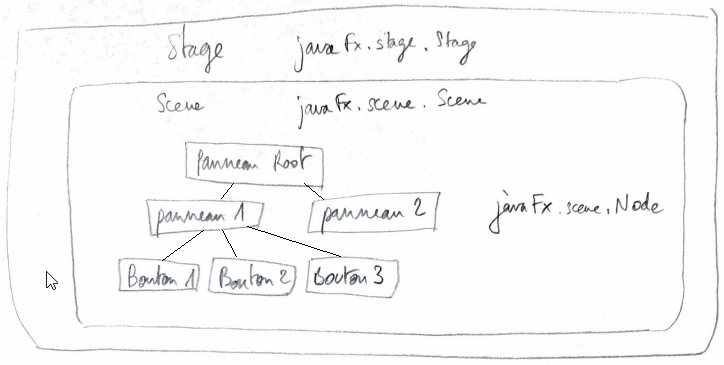 Stage javaFx.stage.Stage
Scene javaFx.scene.Scene
Panneau Root
panneau 1 panneau 2 javaFx.scene.Node
Bouton 1 Bouton 2 Bouton 3